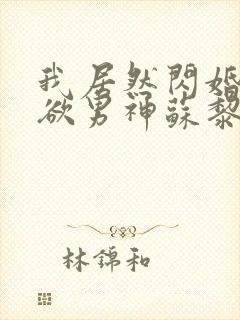 我居然閃婚
欲男神蘇黎
林錦和